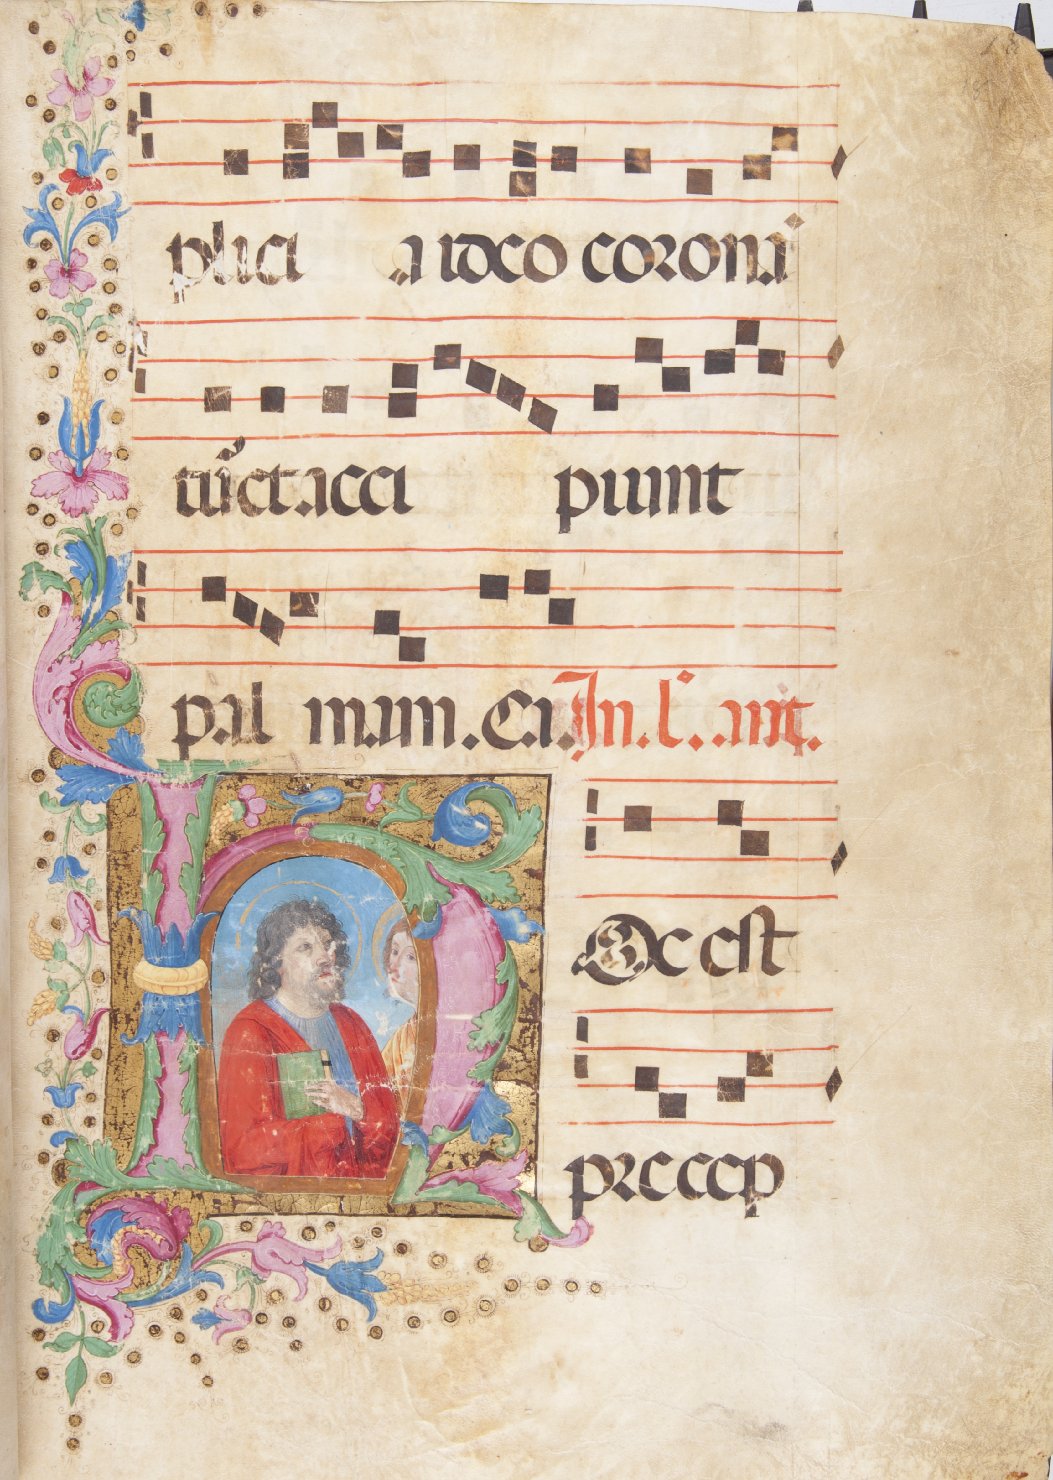 plici a ideo coronā
tu᷑ et acci piunt
pal mam. Ea. In. l°. ant.
HOc est
precep